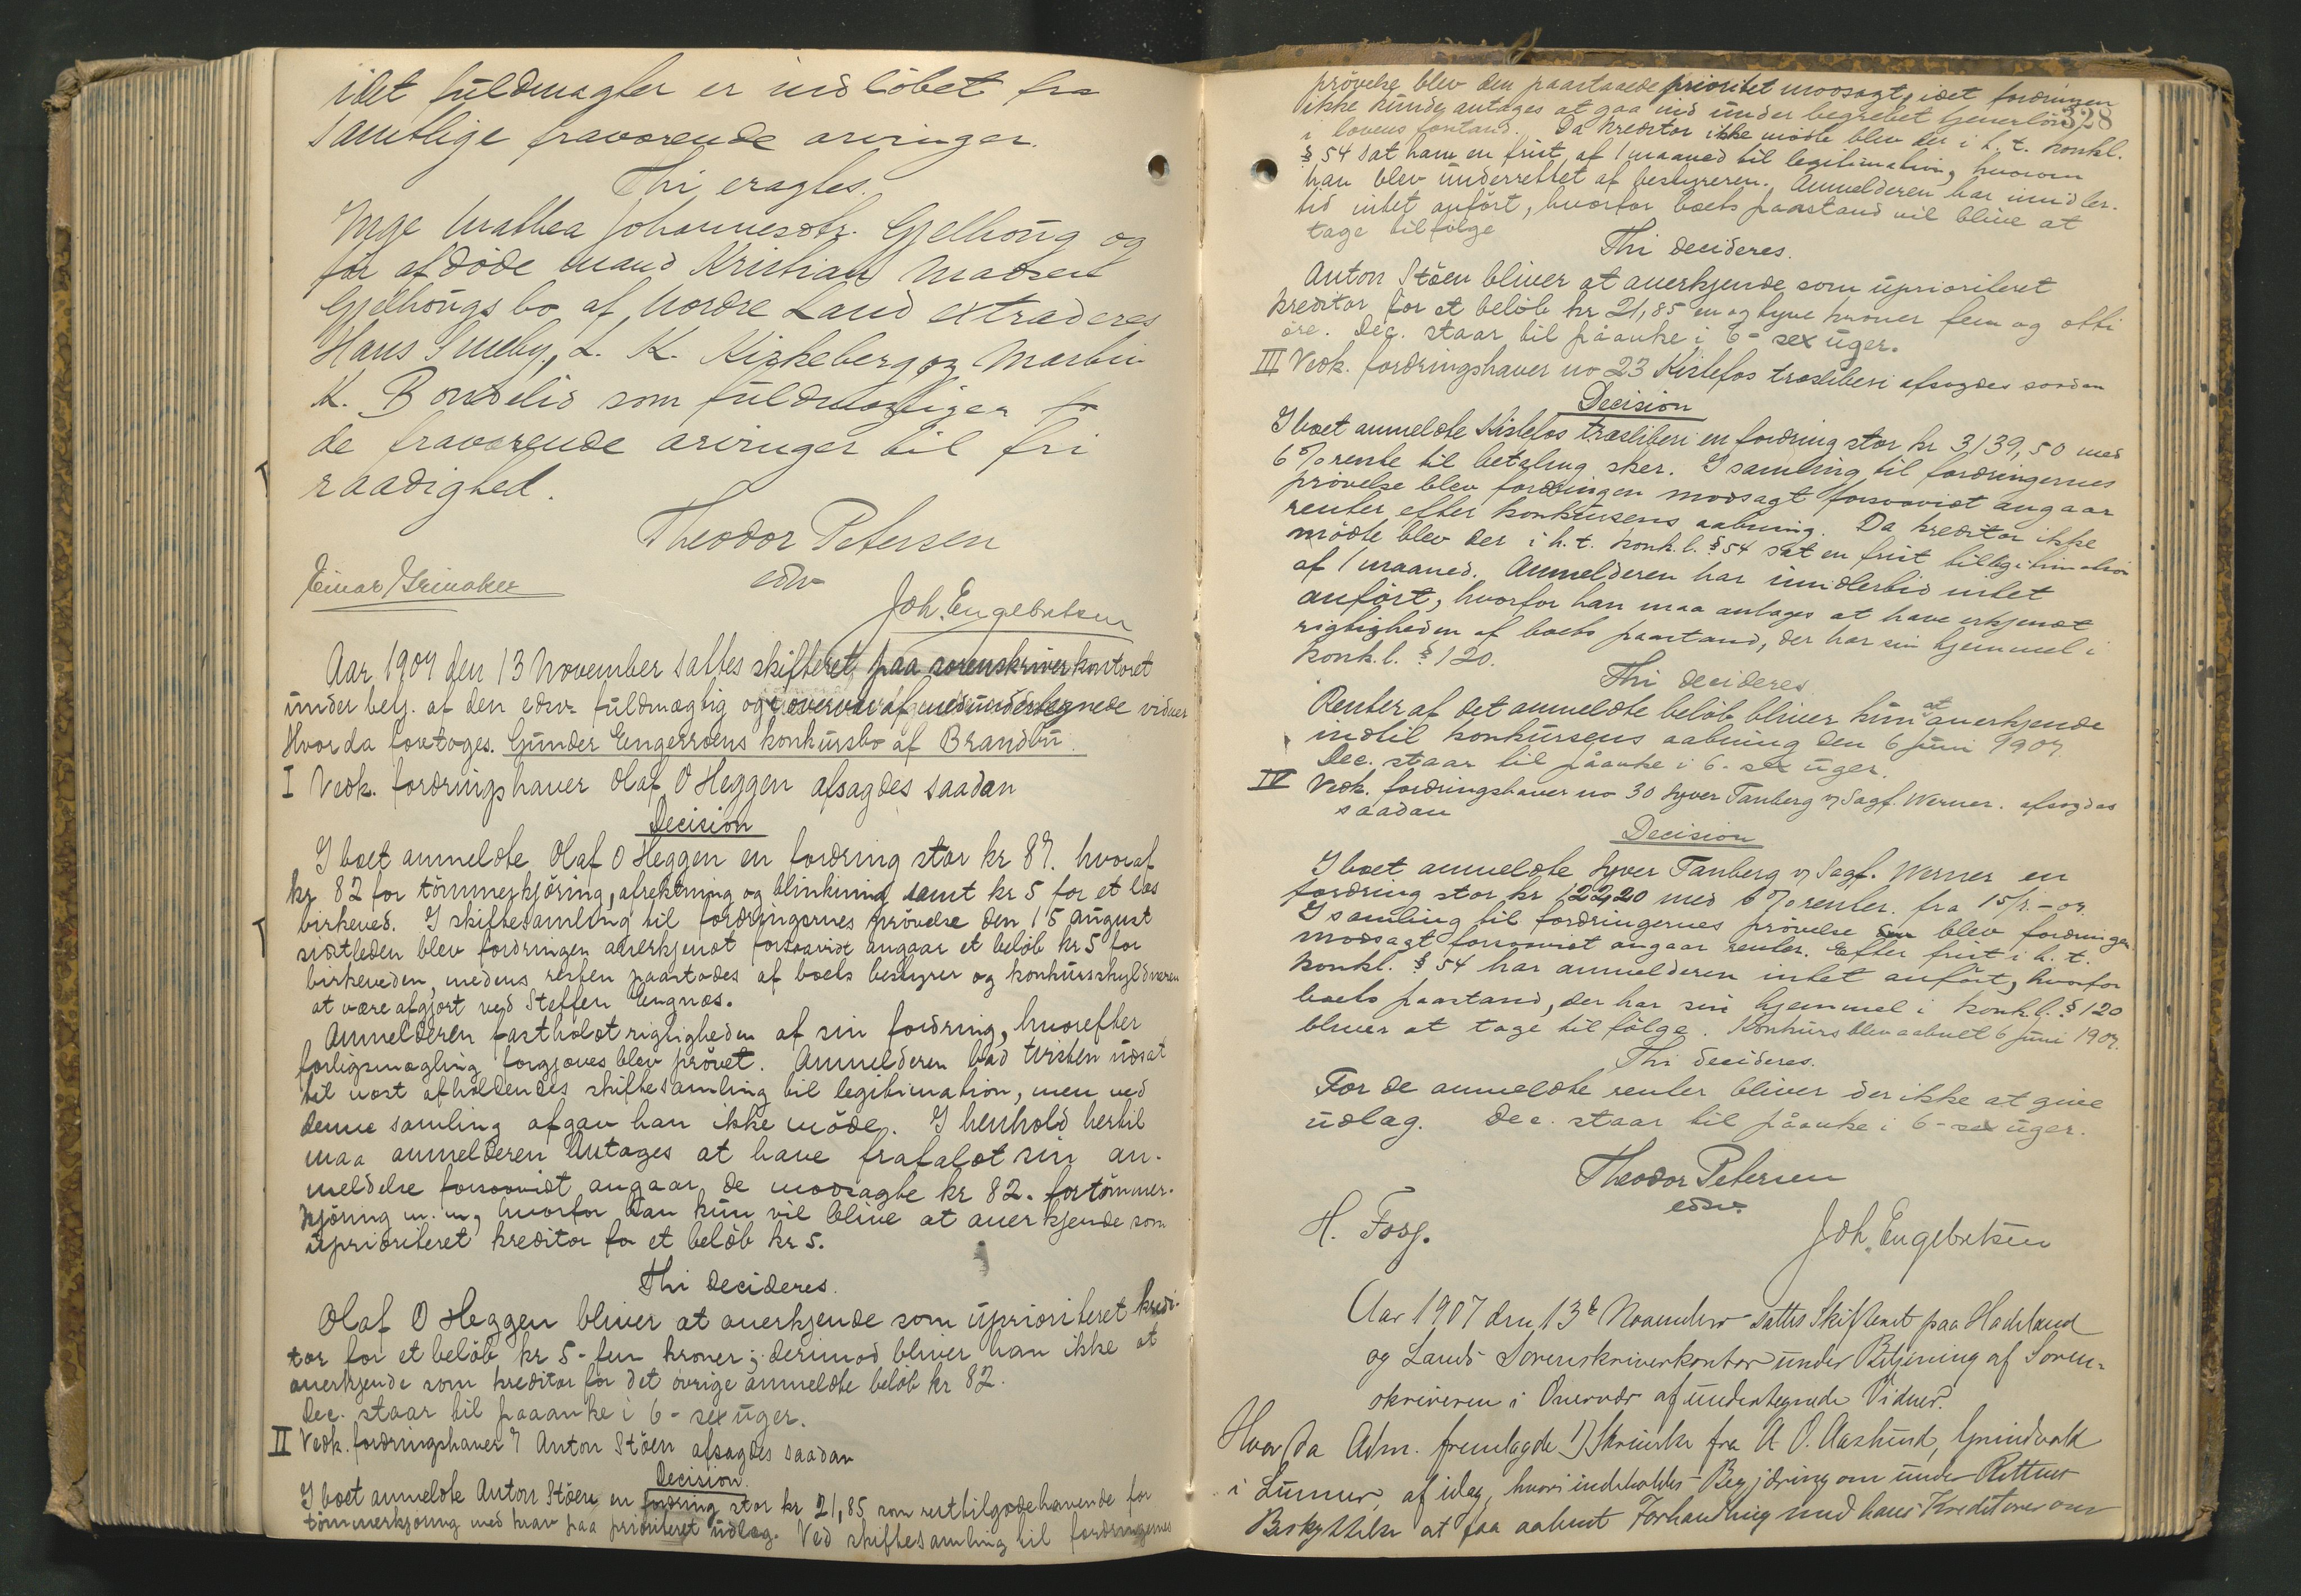 idet fuldmagter er indløbet fra
samtlige fraværende arvinger.
Thi eragtes.
Inge Mathea Johannesdtr. Gjelhoug og
før afdøde mand Kristian Madsen
Gjelhougs bo af Nordre Land extraderes
Hans Smeby, L. K. Kirkeberg og Martin
K. Bondelid som fuldmægtigen for
de fraværende arvinger til fri
raadighed.
Theodor Petersen
edsv
Einar Grinaker
Joh. Engebretsen
Aar 1907 den 13 November sattes skifteret paa sorenskriverkontoret
under betj. af den edsv. fuldmægtig og i overvær af medundertegnede vidner
Hvor da foretoges. Gunder Engerroens konkursbo af Brandbu.
I Vedk. fordringshaver Olaf O Heggen afsagdes saadan
Decision
I boet anmeldte Olaf O Heggen en fordring stor kr 87. hvoraf
kr 82 for tømmerkjøring, afrektning og blinkning samt kr 5 for et læs
birkeved. I skiftesamling til fordringernes prøvelse den 15 august
sidstleden blev fordringen anerkjendt forsaavidt angaar et beløb kr 5 for
birkeveden, medens resten paastodes af boets bestyrer og konkursskyldneren
at være afgjort ved Steffen Engnæs.
Anmelderen fastholdt rigtigheden af sin fordring, hvorefter
forligsmægling forgjæves blev prøvet. Anmelderen bad tvisten udsat
til næst afholdendes skiftesamling til legitimation, men ved
denne samling afgav han ikke møde. I henhold hertil
maa anmelderen antages at have frafaldt sin an-
meldelse forsaavidt angaar de modsagte kr 82. for tømmer-
kjøring m. m, hvorfor han kun vil blive at anerkjende som
uprioriteret kreditor for et beløb kr 5.
Thi decideres.
Olaf O Heggen bliver at anerkjende som uprioriteret kredi-
tor for et beløb kr 5 - fem kroner; derimod bliver han ikke at
anerkjende som kreditor for det øvrige anmeldte beløb kr 82.
Dec. staar til paaanke i 6 - sex uger.
II Vedk. fordringshaver 7 Anton Støen afsagdes saadan
Decision
I boet anmeldte Anton Støen en fordring stor kr 21,85 som resttilgodehavende for
tømmerkjøring med krav paa prioriteret udlæg. Ved skiftesamling til fordringernes
328
prøvelse blev den paastaaede prioritet modsagt, idet fordringen
ikke kunde antages at gaa ind under begrebet tjenerløn
i lovens forstand. Da kreditor ikke mødte blev der i h. t. konkl.
§ 54 sat ham en frist af 1 maaned til legitimation, hvorom
han blev underrettet af bestyreren. Anmelderen har imidler-
tid intet anført, hvorfor boets paastand vil blive at
tage tilfølge
Thi decideres.
Anton Støen bliver at anerkjende som uprioriteret
kreditor for et beløb kr 21,85 en og tyve kroner fem og otti
øre. Dec. staar til påanke i 6 - sex uger.
III Vedk. fordringshaver no 23 Kistefos træsliberi afsagdes saadan
Decision
I boet anmeldte Kistefos træsliberi en fordring stor kr 3139,50 med
6 % rente til betaling sker. I samling til fordringernes
prøvelse blev fordringen modsagt forsaavidt angaar
renter efter konkursens aabning. Da kreditor ikke
mødte blev der i h. t. konk.l. § 54 sat en frist til legitimation
af 1 maaned. Anmelderen har imidlertid intet
anført, hvorfor han maa antages at have erkjendt
rigtigheden af boets paastand, der har sin hjemmel i
konk.l. § 120.
Thi decideres
Renter af det anmeldte beløb bliver kun at anerkjende
indtil konkursens aabning den 6 juni 1907
Dec. staar til påanke i 6 - sex uger.
IV Vedk. fordringshaver no 30 Syver Tanberg v/ Sagf. Werner. afsagdes
saadan
Decision
I boet anmeldte Syver Tanberg v/ Sagf. Werner en
fordring stor kr 122,20 med 6 % renter. fra
I samling til fordringernes prøvelse blev fordringen
modsagt forsaavidt angaar renter. Efter frist i h. t.
konkl. § 54 har anmelderen intet anført, hvorfor
boets paastand, der har sin hjemmel i konk.l. § 120
bliver at tage til følge. Konkurs blev aabnet 6 juni 1907.
Thi decideres.
For de anmeldte renter bliver der ikke at give
udlæg. Dec. staar til påanke i 6 - sex uger.
Theodor Petersen
edsv.
H. Foss.
Joh. Engebretsen
Aar 1907 den 13de November sattes Skifteret paa Hadeland
og Lands Sorenskriverkontor under Betjening af Soren-
skriveren i Overvær af undertegnede Vidner.
Hvor da Adm. fremlagde 1) Skrivelse fra A. O. Aaslund, Grindvold
i Lunner, af idag, hvori indeholdes Begjæring om under Rettens
Beskyttelse at faa aabnet Forhandling med hans Kreditorer om